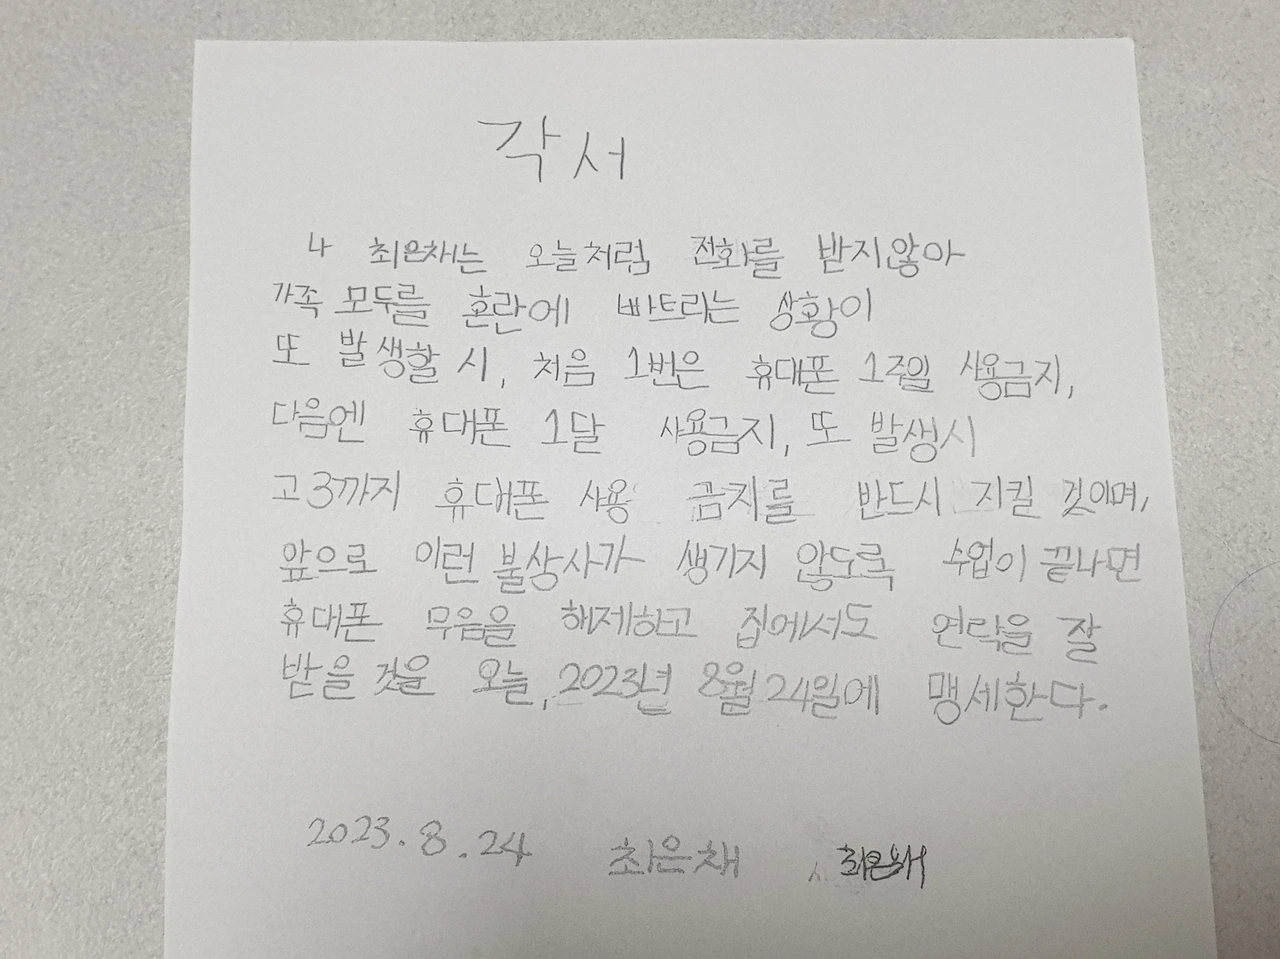 각서
나 최은채는 오늘처럼 전화를 받지않아
가족 모두를 혼란에 빠트리는 상황이
또 발생할 시, 처음 1번은 휴대폰 1주일 사용금지,
다음엔 휴대폰 1달 사용금지, 또 발생시
고3까지 휴대폰 사용 금지를 반드시 지킬 것이며,
앞으로 이런 불상사가 생기지 않도록 수업이 끝나면
휴대폰 무음을 해제하고 집에서도 연락을 잘
받을 것을 오늘, 2023년 8월 24일에 맹세한다.
2023.8.24 최은채 최은채